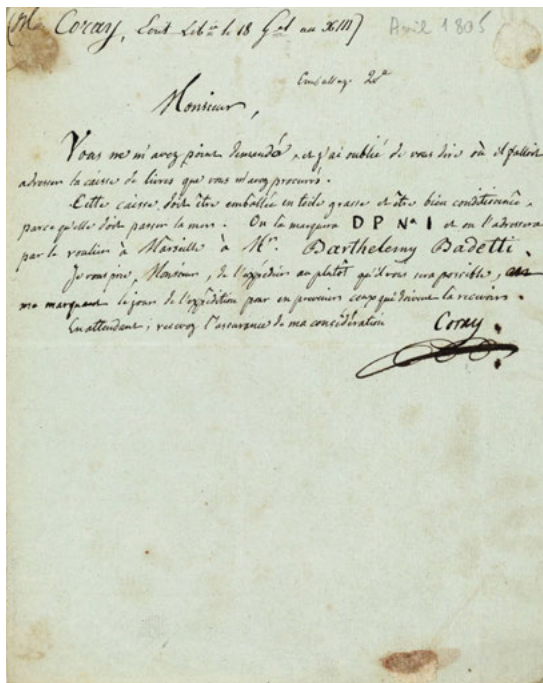 (M. Coray, le 18 Gal an XIII) Avril 1805
Emballage 20
Monsieur,
Vous ne m'avez point demandé, et j'ai oublié de vous dire où il falloit
adresser la caisse de livres que vous m'avez procurés.
Cette caisse doit être emballée en toile grasse et être bien conditionnée,
parce qu'elle doit passer la mer. On la marquera D P N° 1 et on l'adressera
par le roulier à Marseille à Mr. Barthelemy Badetti.
Je vous prie, Monsieur, de l'expédier au plutôt qu'il vous sera possible,
me marquant le jour de l'expédition pour en prévenir ceux qui doivent la recevoir.
En attendant, recevez l'assurance de ma considération Coray.